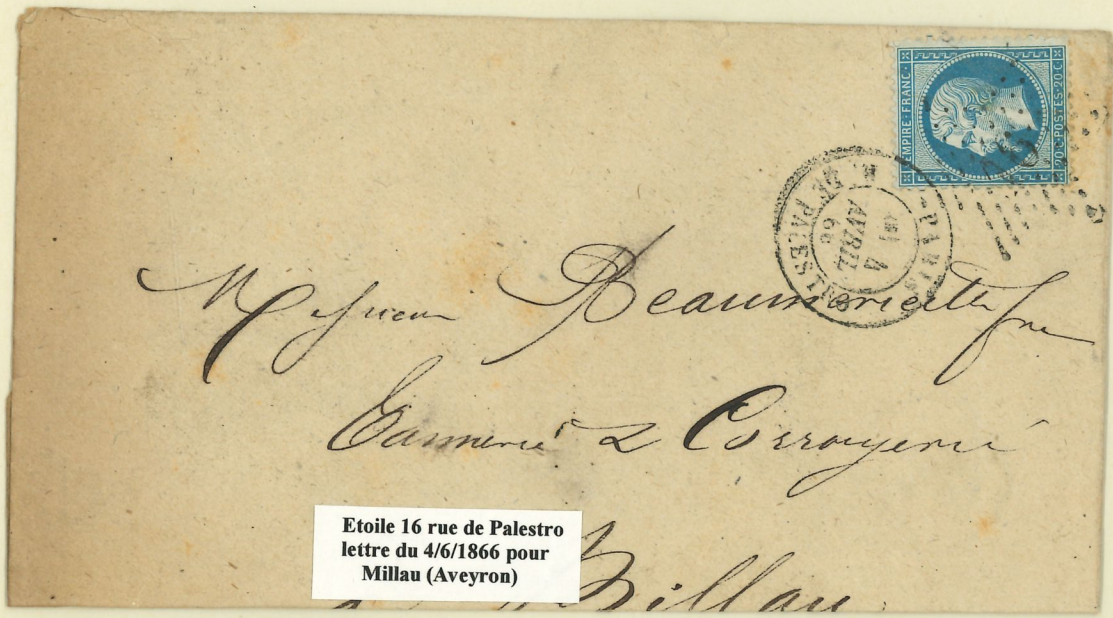 EMPIRE FRANC.
20 c POSTES 20 c
PARIS
R. DE PALESTRO
4
AVRIL
66
Monsieur Beaumevieille fre
Tannerie & Corroyerie
Millau
Etoile 16 rue de Palestro
lettre du 4/6/1866 pour
Millau (Aveyron)